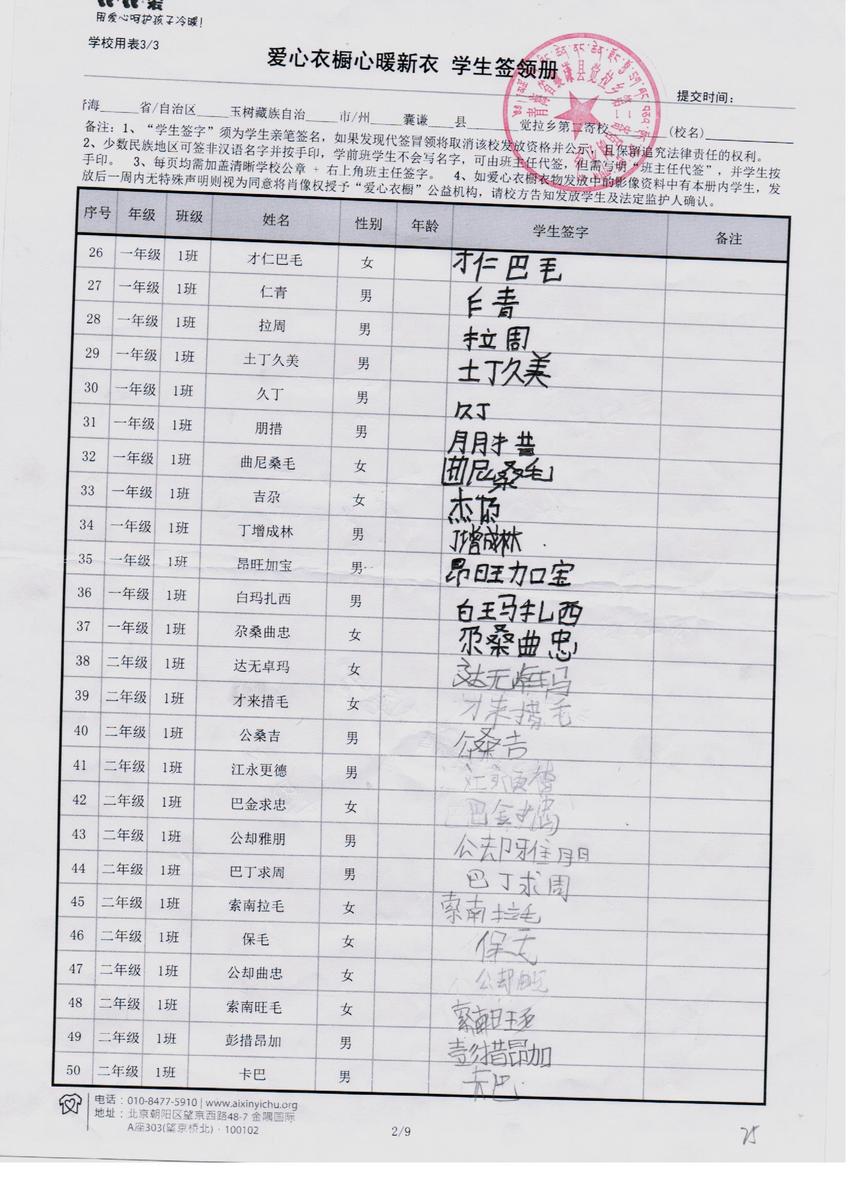 用爱心呵护孩子冷暖!
学校用表3/3
爱心衣橱心暖新衣 学生签领册
提交时间:
青海 省/自治区 玉树藏族自治 市/州 囊谦 县 觉拉乡第二寄校 (校名)
备注: 1、“学生签字”须为学生亲笔签名,如果发现代签冒领将取消该校发放资格并公示,且保留追究法律责任的权利。
2、少数民族地区可签非汉语名字并按手印,学前班学生不会写名字,可由班主任代签,但需写明“班主任代签”,并学生按
手印。 3、每页均需加盖清晰学校公章 + 右上角班主任签字。 4、如爱心衣橱衣物发放中的影像资料中有本册内学生,发
放后一周内无特殊声明则视为同意将肖像权授予“爱心衣橱”公益机构,请校方告知发放学生及法定监护人确认。
序号 年级 班级 姓名 性别 年龄 学生签字 备注
26 一年级 1班 才仁巴毛 女 才仁巴毛
27 一年级 1班 仁青 男 青
28 一年级 1班 拉周 男 拉周
29 一年级 1班 土丁久美 男 土丁久美
30 一年级 1班 久丁 男 久丁
31 一年级 1班 朋措 男 朋措
32 一年级 1班 曲尼桑毛 女 曲尼桑毛
33 一年级 1班 吉尕 女
34 一年级 1班 丁增成林 男 丁增成林
35 一年级 1班 昂旺加宝 男 昂旺加宝
36 一年级 1班 白玛扎西 男 白玛扎西
37 一年级 1班 尕桑曲忠 女 尕桑曲忠
38 二年级 1班 达无卓玛 女 达无卓玛
39 二年级 1班 才来措毛 女 才来措毛
40 二年级 1班 公桑吉 男 公桑吉
41 二年级 1班 江永更德 男
42 二年级 1班 巴金求忠 女 巴金求
43 二年级 1班 公却雅朋 男 公却雅朋
44 二年级 1班 巴丁求周 男 巴丁求周
45 二年级 1班 索南拉毛 女 索南拉毛
46 二年级 1班 保毛 女 保毛
47 二年级 1班 公却曲忠 女 公却曲
48 二年级 1班 索南旺毛 女 索南旺毛
49 二年级 1班 彭措昂加 男 彭措昂加
50 二年级 1班 卡巴 男 卡巴
电话:010-8477-5910 | www.aixinyichu.org
地址:北京朝阳区望京西路48-7 金隅国际
A座303(望京桥北)· 100102
2/9
25